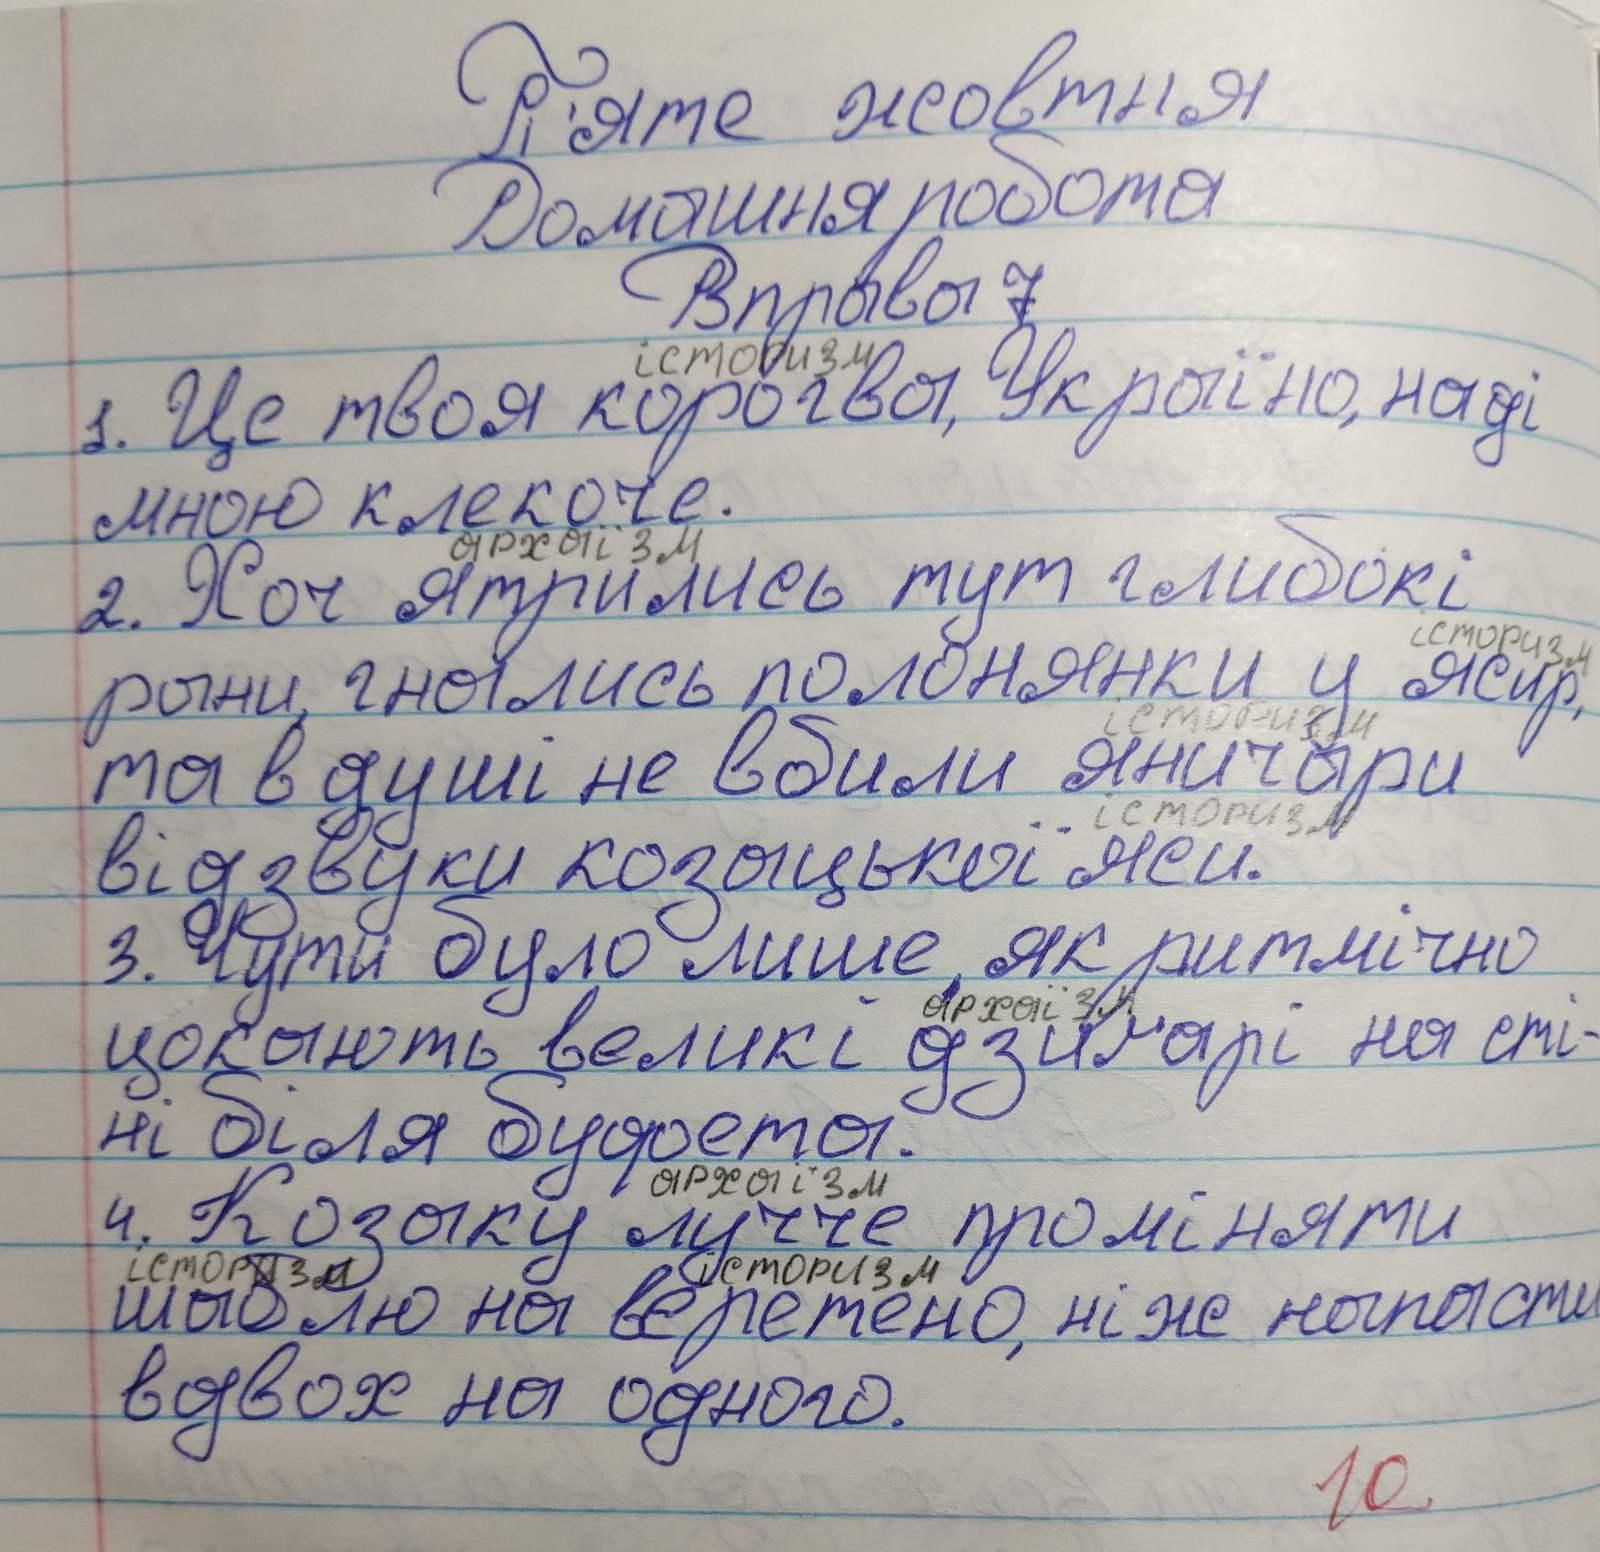 П'яте жовтня
Домашня робота
Вправа 7
історизм
1. Це твоя корогва, Україно, наді
мною клекоче.
архаїзм
2. Хоч ятрились тут глибокі
історизм
рани, гнались полонянки у ясир,
історизм
та в душі не вбили яничари
історизм
відзвуки козацької яси.
3. Чути було лише, як ритмічно
архаїзм
цокають великі дзиґарі на сті-
ні біля буфета.
архаїзм
4. Козаку лучче проміняти
історизм історизм
шаблю на веретено, ніже напасти
вдвох на одного.
10